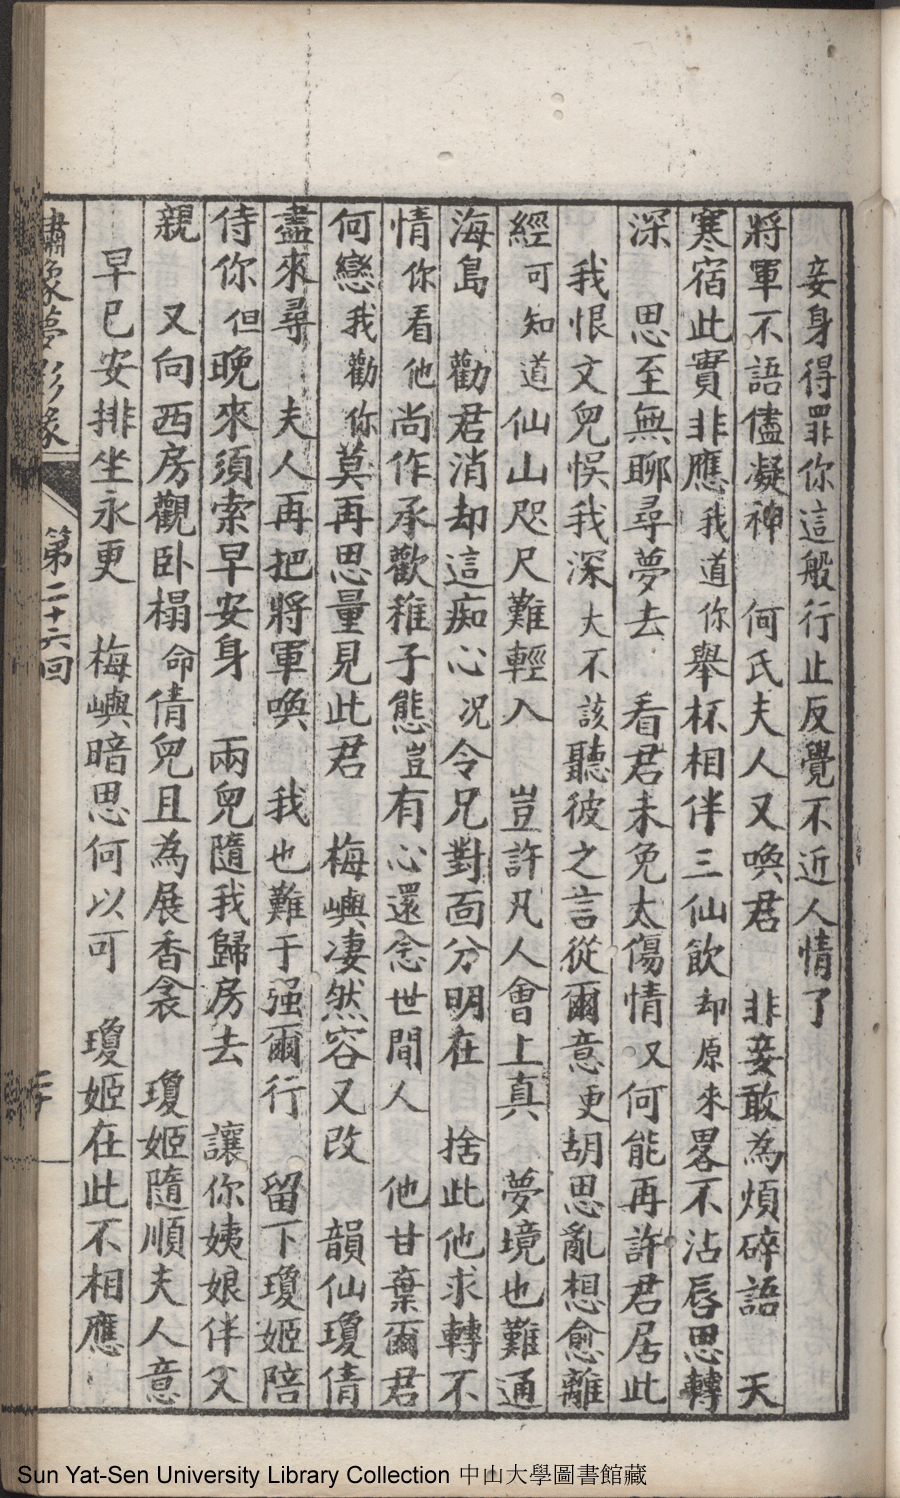 妾身得罪你這般行止反覺不近人情了
將軍不語儘凝神　何氏夫人又喚君　非妾敢為煩碎語　天
寒宿此實非應我道你舉杯相伴三仙飲却原來畧不沾唇思轉
深　思至無聊尋夢去　看君未免太傷情又何能再許君居此
我恨文兒悞我深大不該聽彼之言從爾意更胡思亂想愈離
經可知道仙山咫尺難輕入　豈許凡人會上真　夢境也難通
海島　勸君消却這痴心况令兄對面分明在　捨此他求轉不
情你看他尚作承歡稚子態豈有心還念世間人　他甘棄爾君
何戀我勸你莫再思量見此君　梅嶼凄然容又改　韻仙瓊倩
盡來尋　夫人再把將軍喚　我也難于强爾行　留下瓊姬陪
侍你但晚來須索早安身　兩兒隨我歸房去　讓你姨娘伴父
親　又向西房觀卧榻命倩兒且為展香衾　瓊姬隨順夫人意
早已安排坐永更　梅嶼暗思何以可　瓊姬在此不相應
夢影緣
第二十六回
Sun Yat-Sen University Library Collection 中山大學圖書館藏